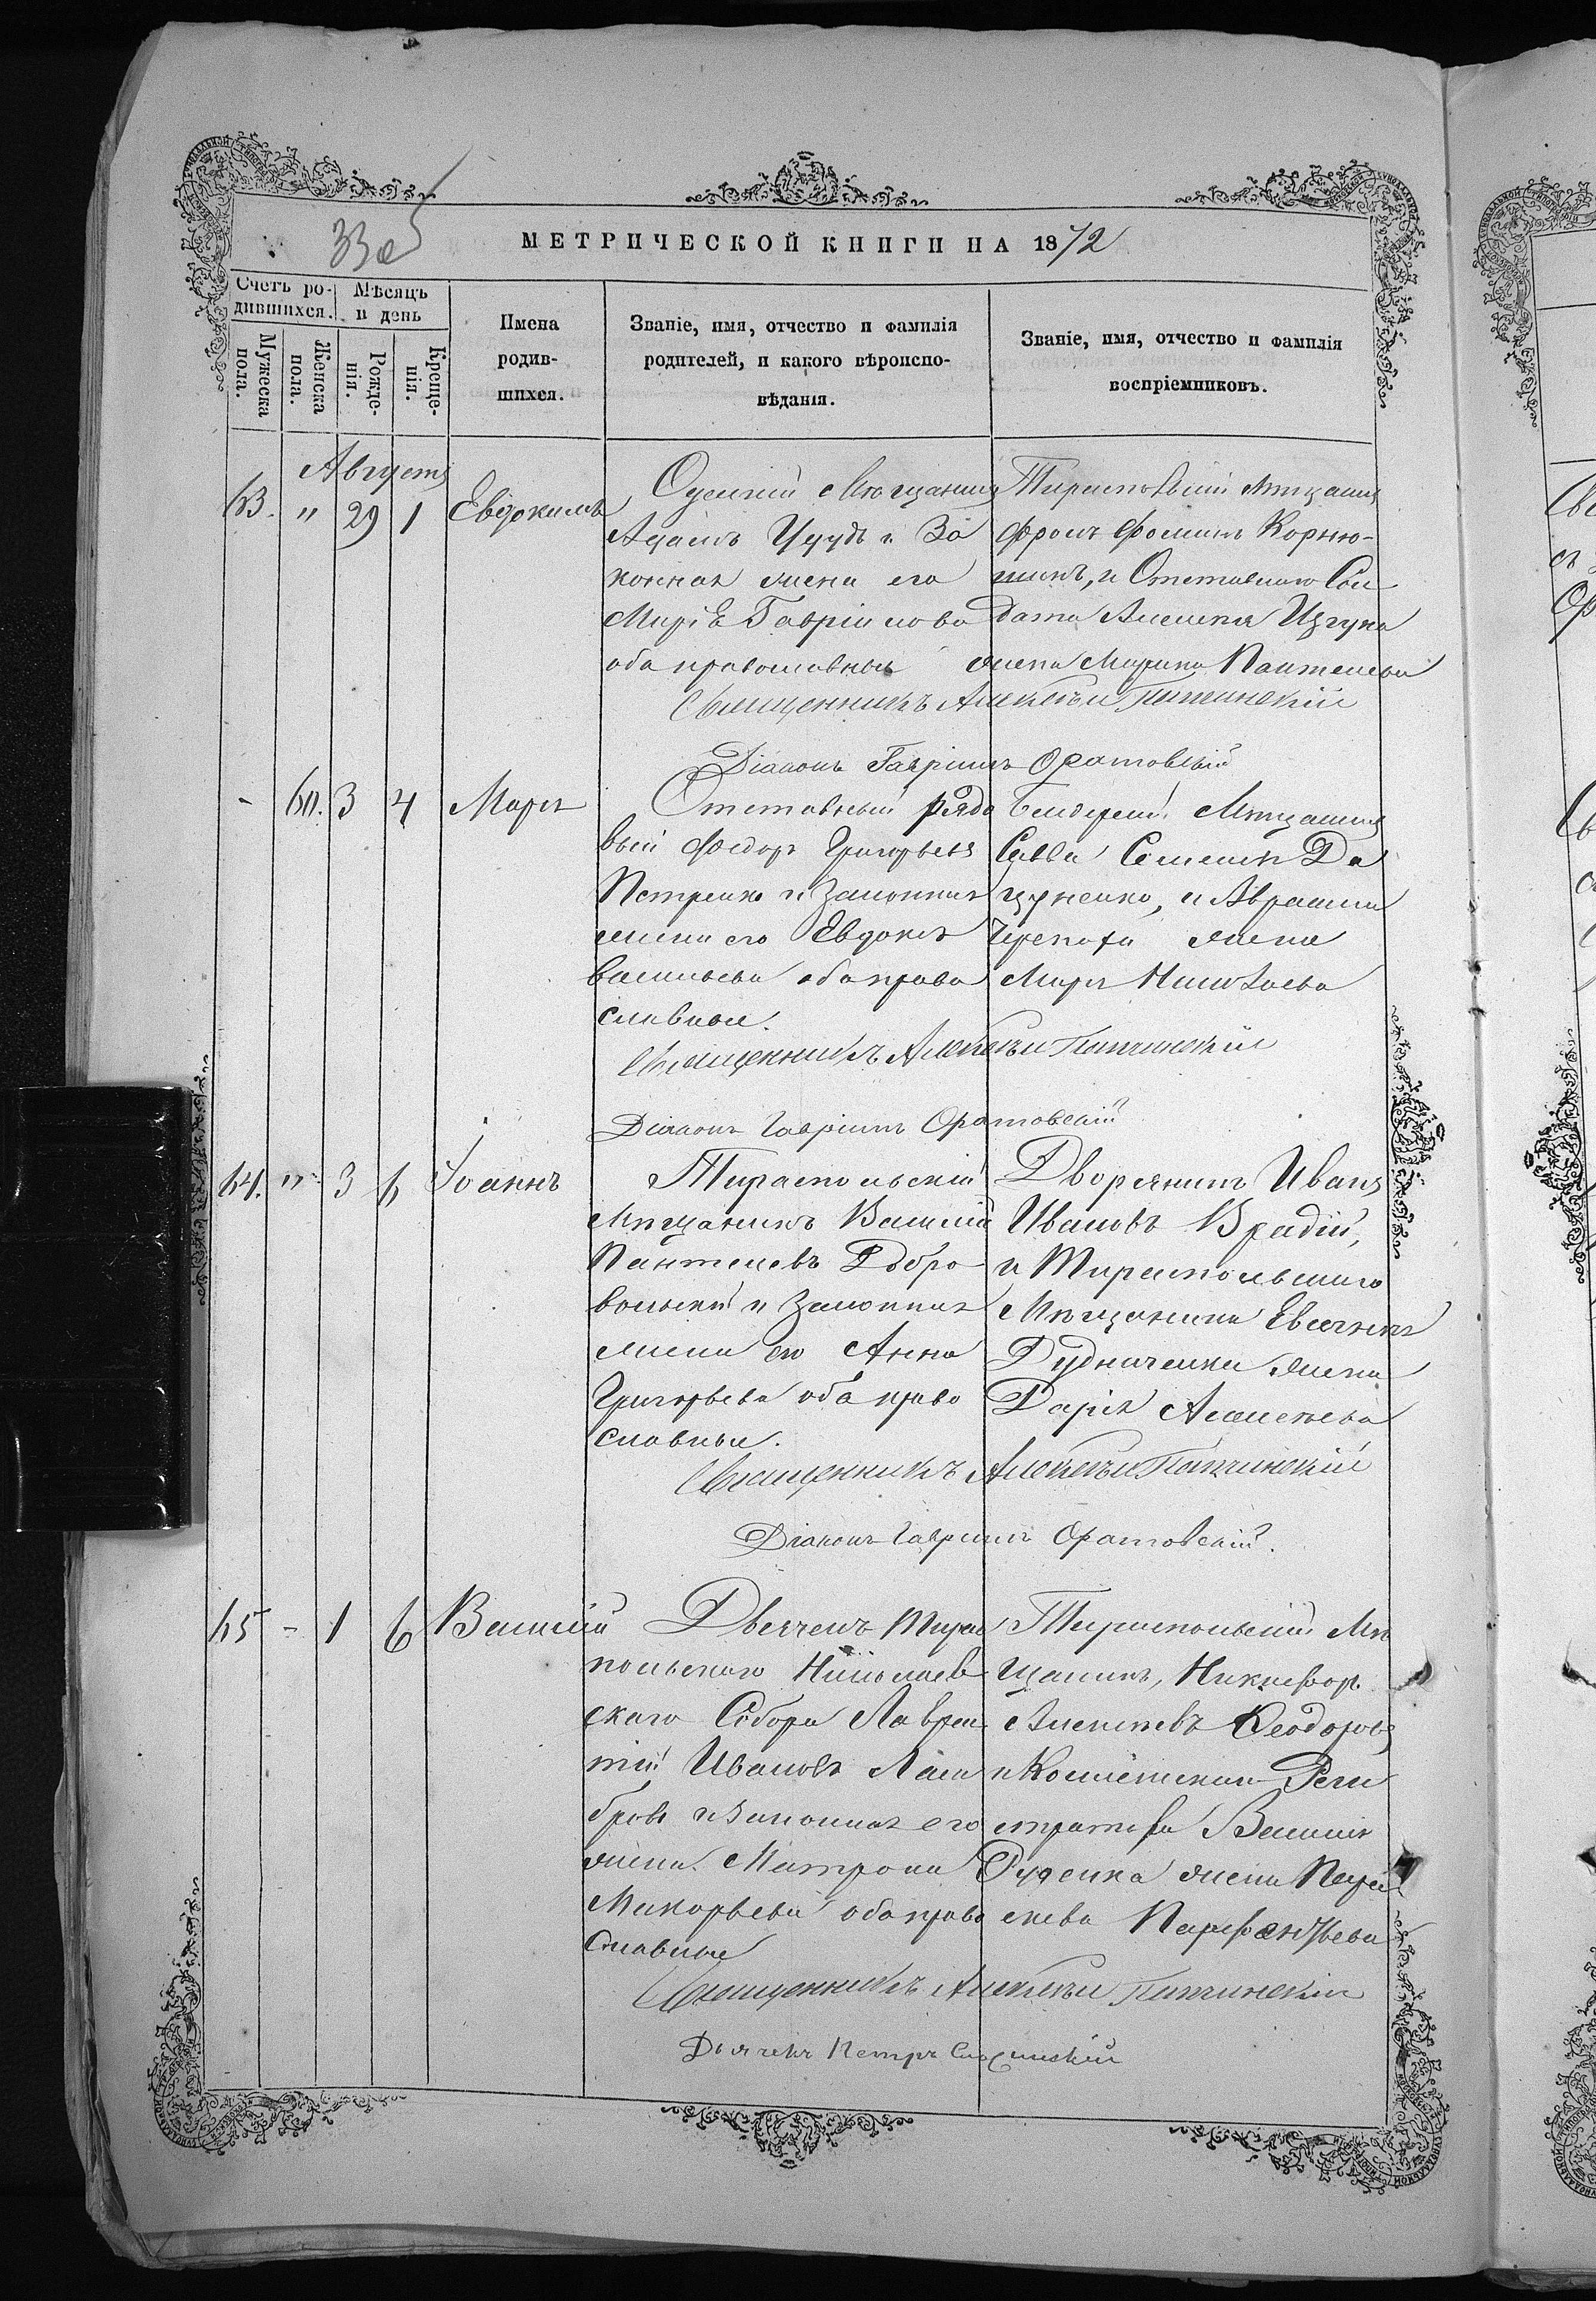 МЕТРИЧЕСКОЙ КНИГИ НА 1872
Счетъ ро-
дившихся.
Мѣсяцъ
и день
Мужеска
пола.
Женска
пола.
Рожде-
нія.
Креще-
нія.
Имена
родив-
шихся.
Званіе, имя, отчество и фамилія
родителей, и какого вѣроиспо-
вѣданія.
Званіе, имя, отчество и фамилія
воспріемниковъ.
Августъ
63. " 29 1 Евдокимъ
Одескій Мѣщанинъ
Адамъ и За
конная жена его
Марія Гавріилова
оба православные
Тираспольскій Мѣщанинъ
Фроль Фоминъ Корню-
шинъ, и Отставнаго Сол
дата Алексея
жена Марина Пантелеева
Священникъ Алексѣй
Діаконъ Гавріилъ Оратовскій
- 60. 3 4 Марія
Отставный рядо
вый Ѳедоръ Григорьевъ
Петренко и Законная
жена его Евдокія
Васильева оба право
славные.
Бендерскій Мѣщанинъ
Савва Семеновъ Да
цуненко, и Авраама
Черепахи жена
Марія Николаева
Священникъ Алексѣй
Діаконъ Гавріилъ Оратовскій
64. " 3 6 Іоаннъ
Тираспольскій
Мѣщанинъ Василій
Пантелеевъ Добро
вольскій и Законная
жена его Анна
Григорьева оба право
славные.
Дворянинъ Иванъ
Ивановъ Врадій,
и Тираспольскаго
Мѣщанина Евсечія
Дудниченки жена
Дарія Алексеева
Священникъ Алексѣй
Діаконъ Гавріилъ Оратовскій.
65 - 1 6 Василій
Дьячекъ Тирас
польскаго Николаев
скаго Собора Лаврен
тій Ивановъ Лам
бровъ и Законная его
жена Матрона
Макарьева оба право
славные
Тираспольскій Мѣ
щанинъ, Никифоръ
Алексеевъ Ѳеодоровъ
и Колежскаго Реги
стратора Василія
Руденка жена Парас
кева Парфентьева
Священникъ Алексѣй
Дьячекъ Петръ